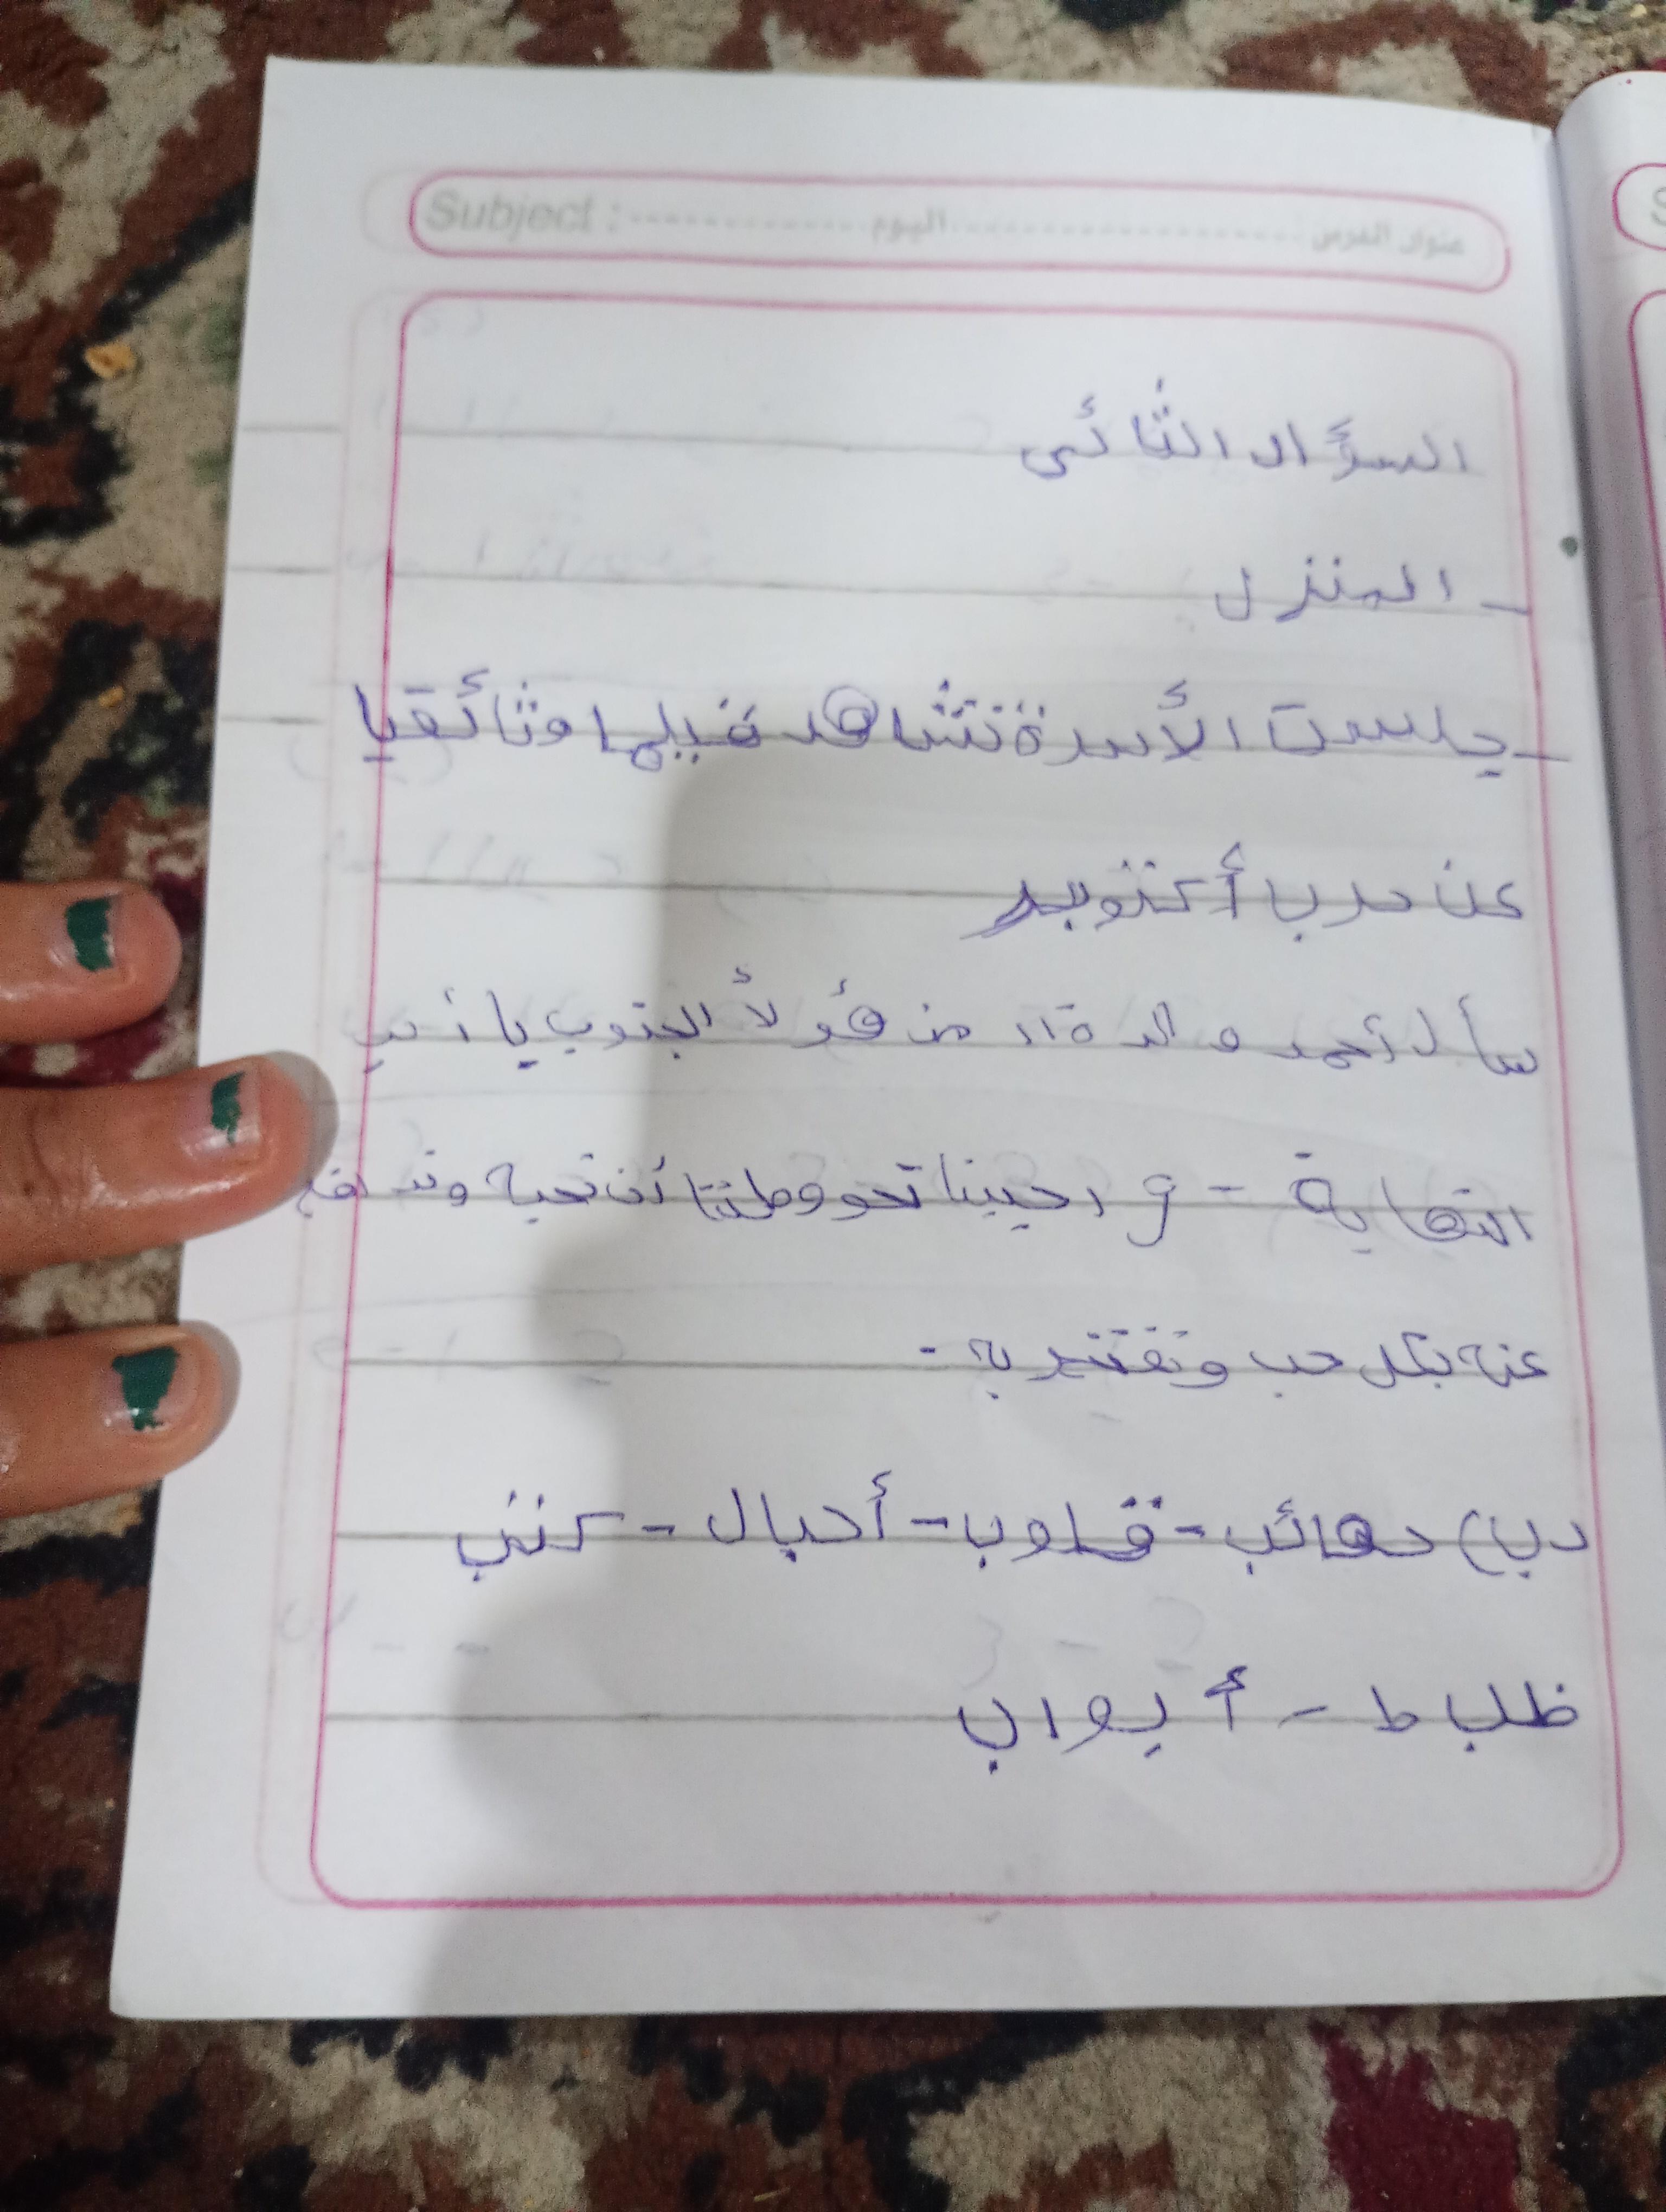 Subject : اليوم عنوان الدرس
السؤال الثائى
- المنزل
- جلست الأسرة تشاهد فيلما وثائقيا
عن حرب أكتوبر
سأل أحمد والدة :: من هؤلأ الجنوب يا أبى
النهاية - وا جبنا نحو وطننا أن نحبه وند افع
عنه بكل حب ونفتخر به -
(ب) حقائب - قلوب - أحبال - كتب
ظلب ط - أبواب